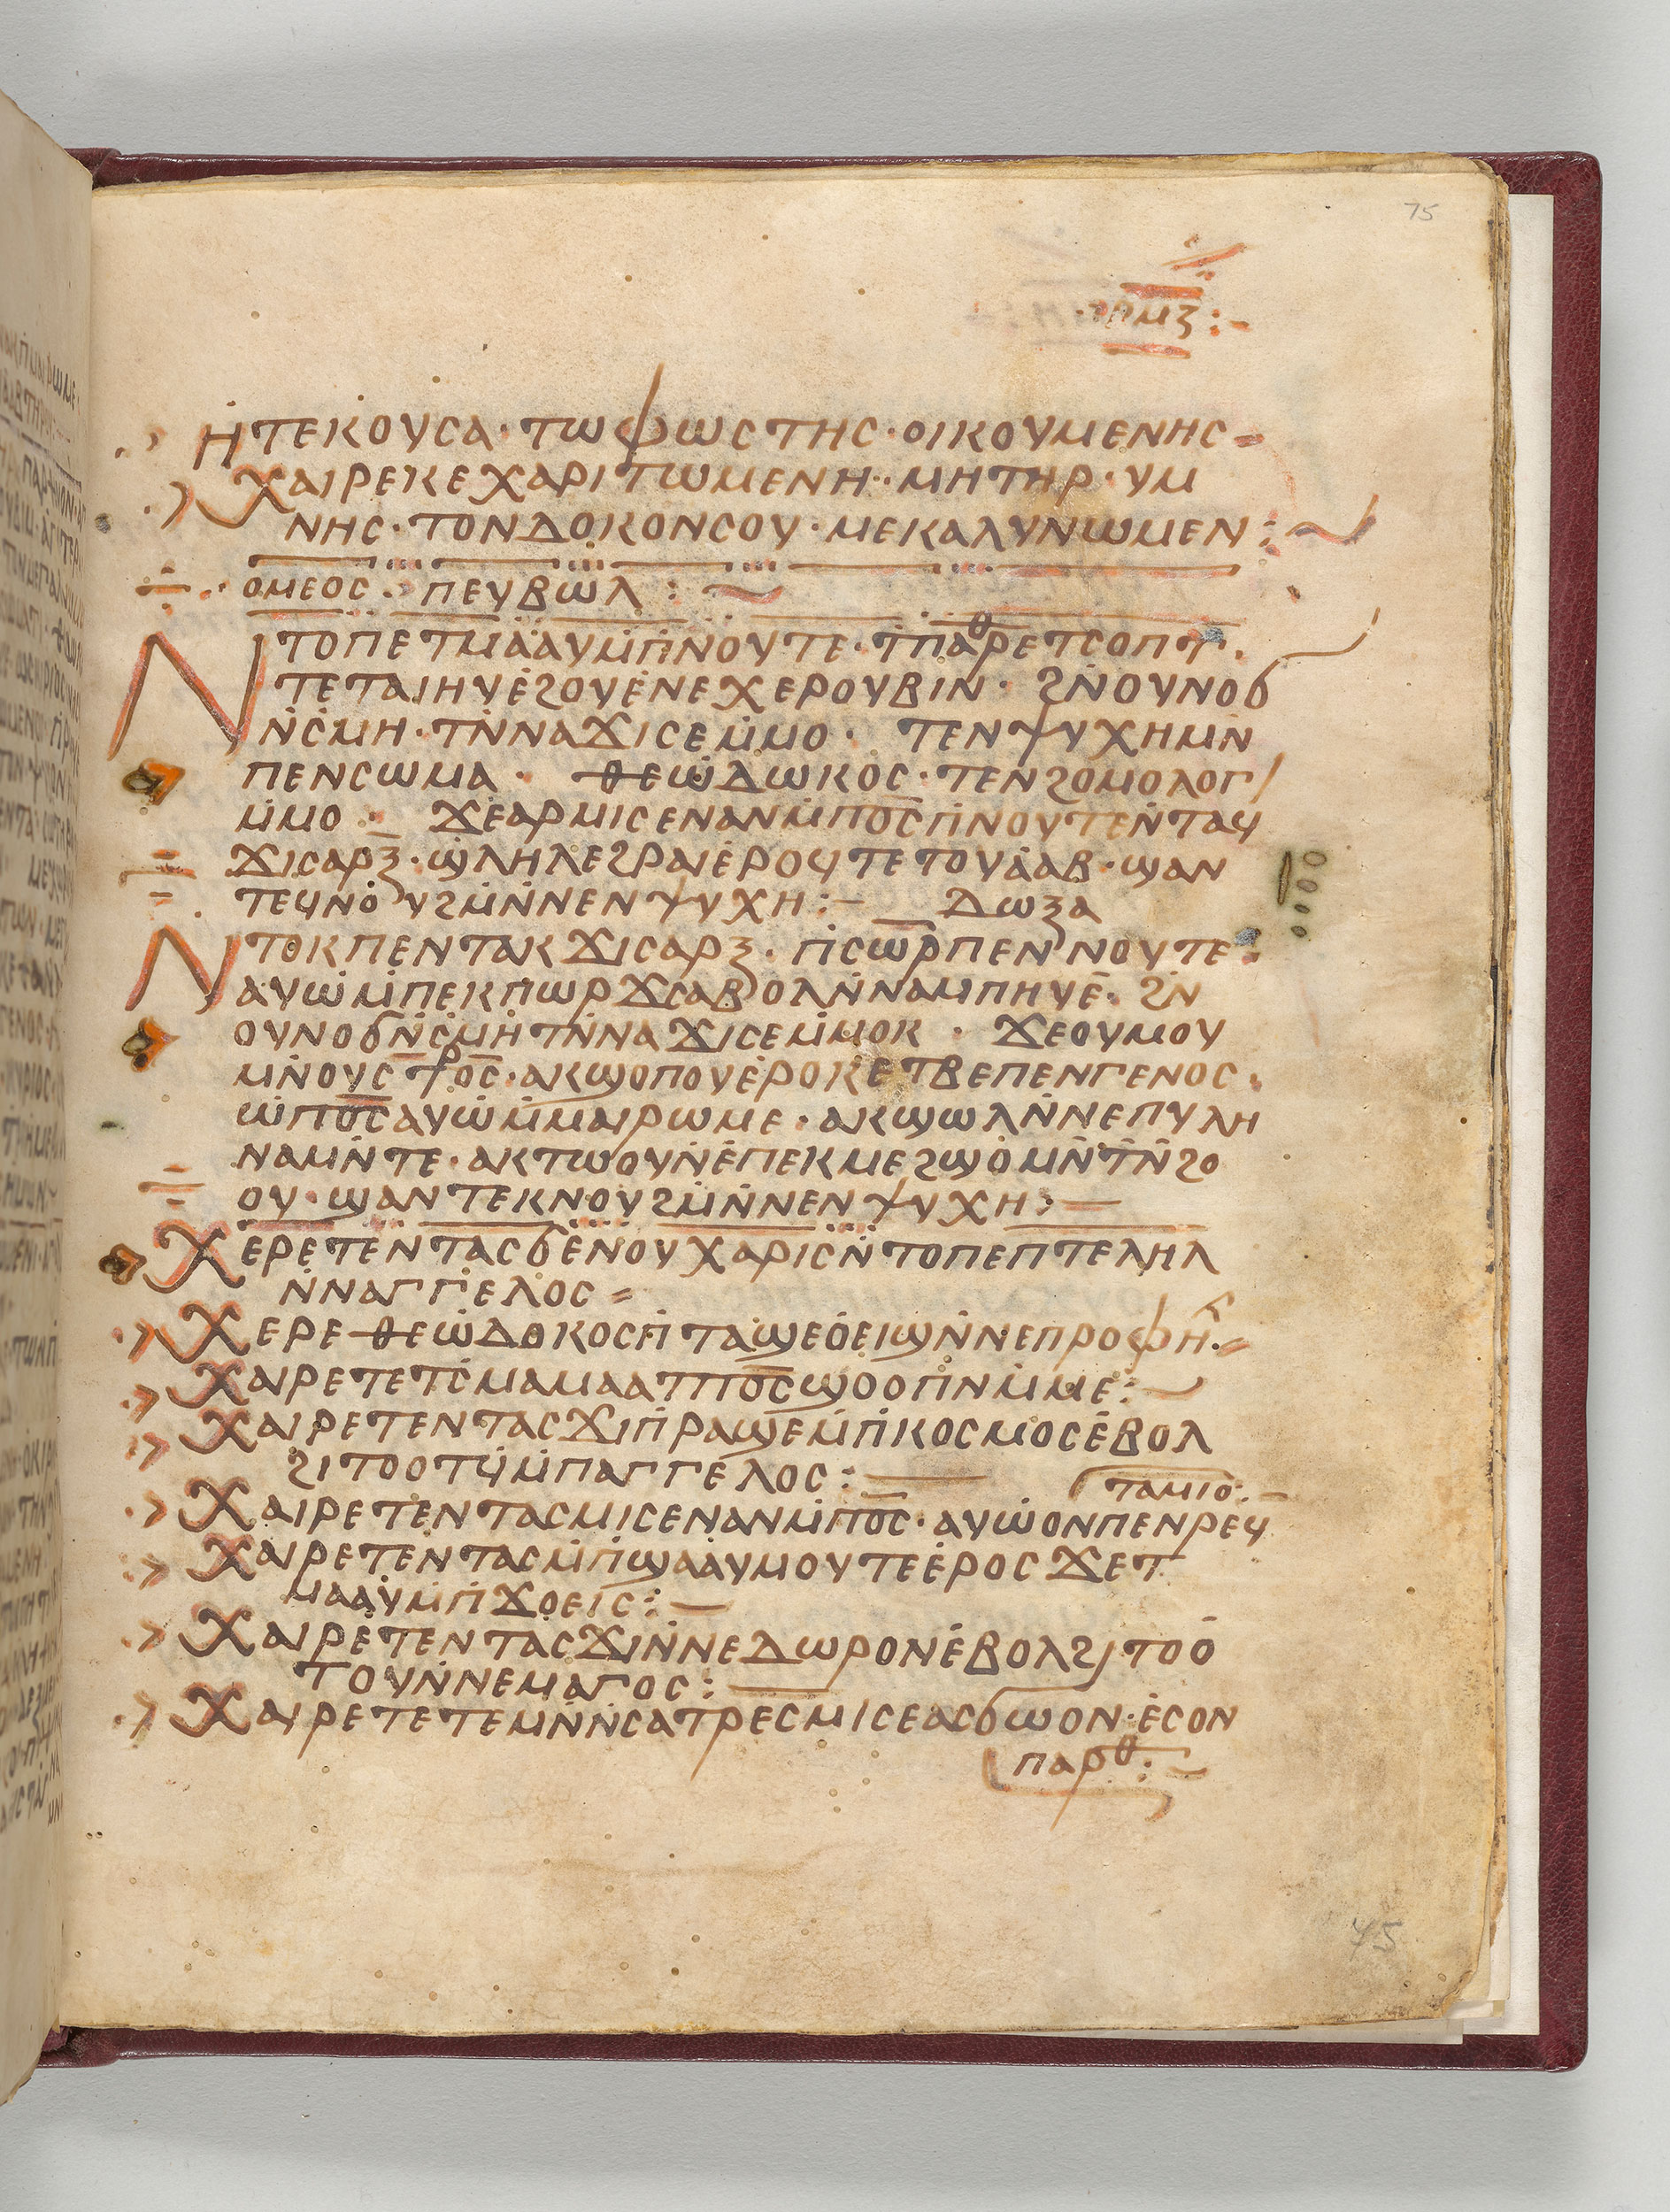 75
ⲣⲙⲍ:-
ⲎⲦⲈⲔⲞⲨⲤⲀ· ⲦⲰⲪⲰⲤⲦⲎⲤ· ⲞⲒⲔⲞⲨⲘⲈⲚⲎⲤ=
ⲬⲀⲒⲢⲈⲔⲈⲬⲀⲢⲒⲦⲰⲘⲈⲚⲎ· ⲘⲎⲦⲎⲢ· ⲨⲘ
ⲚⲎⲤ· ⲦⲞⲚⲆⲞⲔⲞⲚⲤⲞⲨ· ⲘⲈⲔⲀⲖⲨⲚⲰⲘⲈⲚ:~
ⲟⲙⲉⲟⲥ· ⲡⲉⲩⲃⲱⲗ:~
Ⲛⲧⲟⲡⲉⲧⲙⲁ̇ⲁⲩⲙ̇ⲡ̇ⲛⲟⲩⲧⲉ· ⲧ̇ⲡⲁⲣᶿⲉⲧⲥⲟⲡⲧ·
ⲧⲉⲧⲁⲓⲏⲩⲉ̇ϩⲟⲩⲉ̇ⲛⲉⲭⲉⲣⲟⲩⲃⲓⲛ· ϩⲛ̇ⲟⲩⲛⲟϭ
ⲛ̇ⲥ̇ⲙⲏ· ⲧⲛ̇ⲛⲁϫⲓⲥⲉⲙ̇ⲙⲟ· ⲧⲉⲛⲯⲩⲭⲏⲙⲛ̇
ⲡⲉⲛⲥⲱⲙⲁ· ⲑⲉⲱ̇ⲇⲱⲕⲟⲥ· ⲧⲉⲛϩⲟⲙⲟⲗⲟⲅ/
ⲙ̇ⲙⲟ· ϫⲉⲁⲣⲙⲓⲥⲉⲛⲁⲛⲙ̇ⲡⲟ̅ⲥ̅ⲡ̇ⲛⲟⲩⲧⲉⲛ̇ⲧⲁϥ
ϫⲓⲥⲁⲣⲝ· ϣⲗⲏⲗⲉϩⲣⲁⲓⲉ̇ⲣⲟϥⲧⲉⲧⲟⲩⲁ̇ⲁⲃ· ϣⲁⲛ
ⲧⲉϥⲛⲟ̇ⲩϩⲙ̇ⲛ̇ⲛⲉⲛⲯⲩⲭⲏ:- ⲇⲱⲝⲁ
Ⲛⲧⲟⲕⲡⲉⲛⲧⲁⲕϫⲓⲥⲁⲣⲝ· ⲡ̇ⲥⲱ̅ⲣ̅ⲡⲉⲛⲛⲟⲩⲧⲉ·
ⲁⲩⲱ̇ⲙ̇ⲡⲉⲕⲡⲱⲣϫⲉⲃⲟⲗⲛ̇ⲛⲁⲙⲡⲏⲩⲉ̇· ϩⲛ̇
ⲟⲩⲛⲟϭⲛ̇ⲥ̇ⲙⲏⲧⲛ̇ⲛⲁϫⲓⲥⲉⲙ̇ⲙⲟⲕ· ϫⲉⲟⲩⲙⲟⲩ
ⲙⲛ̇ⲟⲩⲥ̅ⳁⲟ̅ⲥ̅· ⲁⲕϣⲟⲡⲟⲩⲉ̇ⲣⲟⲕⲉⲧⲃⲉⲡⲉⲛⲅⲉⲛⲟⲥ·
ⲱ̇ⲡⲟ̅ⲥ̅ⲁⲩⲱ̇ⲙ̇ⲙⲁⲓⲣⲱⲙⲉ· ⲁⲕϣⲱⲗⲛ̇ⲛⲉⲡⲩⲗⲏ
ⲛⲁⲙⲛ̇ⲧⲉ· ⲁⲕⲧⲱⲟⲩⲛ̇ⲉ̇ⲡⲉⲕⲙⲉϩϣⲟ̇ⲙⲛ̇ⲧⲛ̇ϩⲟ
ⲟⲩ· ϣⲁⲛⲧⲉⲕⲛⲟⲩϩⲙ̇ⲛ̇ⲛⲉⲛⲯⲩⲭⲏ:—
Ⲭⲉⲣⲉⲧⲉⲛⲧⲁⲥϭⲉⲛⲟⲩⲭⲁⲣⲓⲥⲛ̇ⲧⲟⲡⲉⲡⲧⲉⲗⲏⲗ
ⲛ̇ⲛⲁⲅⲅⲉⲗⲟⲥ=
Ⲭⲉⲣⲉⲑⲉⲱ̇ⲇⲟⲕⲟⲥⲡ̇ⲧⲁϣⲉⲟ̇ⲉⲓϣⲛ̇ⲛⲉⲡⲣⲟⲫⲏ·=
Ⲭⲁⲓⲣⲉⲧⲉⲧⲥ̇ⲙⲁⲙⲁⲁⲧⲡⲟ̅ⲥ̅ϣⲟⲟⲡⲛⲙ̇ⲙⲉ:~
Ⲭⲁⲓⲣⲉⲧⲉⲛⲧⲁⲥϫⲓⲡ̇ⲣⲁϣⲉⲙ̇ⲡ̇ⲕⲟⲥⲙⲟⲥⲉ̇ⲃⲟⲗ
ϩⲓⲧⲟⲟⲧϥ̇ⲙ̇ⲡⲁⲅⲅⲉⲗⲟⲥ:— ⲧⲁⲙⲓⲟ:-
Ⲭⲁⲓⲣⲉⲧⲉⲛⲧⲁⲥⲙⲓⲥⲉⲛⲁⲛⲙ̇ⲡⲟ̅ⲥ̅· ⲁⲩⲱ̇ⲟⲛⲡⲉⲛⲣⲉϥ
Ⲭⲁⲓⲣⲉⲧⲉⲛⲧⲁⲥⲙ̇ⲡ̇ϣⲁⲁ̇ⲩⲙⲟⲩⲧⲉⲉ̇ⲣⲟⲥϫⲉⲧ
ⲙⲁⲁ̇ⲩⲙ̇ⲡ̇ϫⲟⲉⲓⲥ:—
Ⲭⲁⲓⲣⲉⲧⲉⲛⲧⲁⲥϫⲓⲛ̇ⲛⲉⲇⲱⲣⲟⲛⲉ̇ⲃⲟⲗϩⲓⲧⲟⲟ̇
ⲧⲟⲩⲛ̇ⲛⲉⲙⲁⲅⲟⲥ:—
Ⲭⲁⲓⲣⲉⲧⲉⲧⲉⲙⲛ̇ⲛ̇ⲥⲁⲧⲣⲉⲥⲙⲓⲥⲉⲁⲥϭⲱⲟⲛ· ⲉ̇ⲥⲟⲛ
ⲡⲁⲣᶿ:-
45